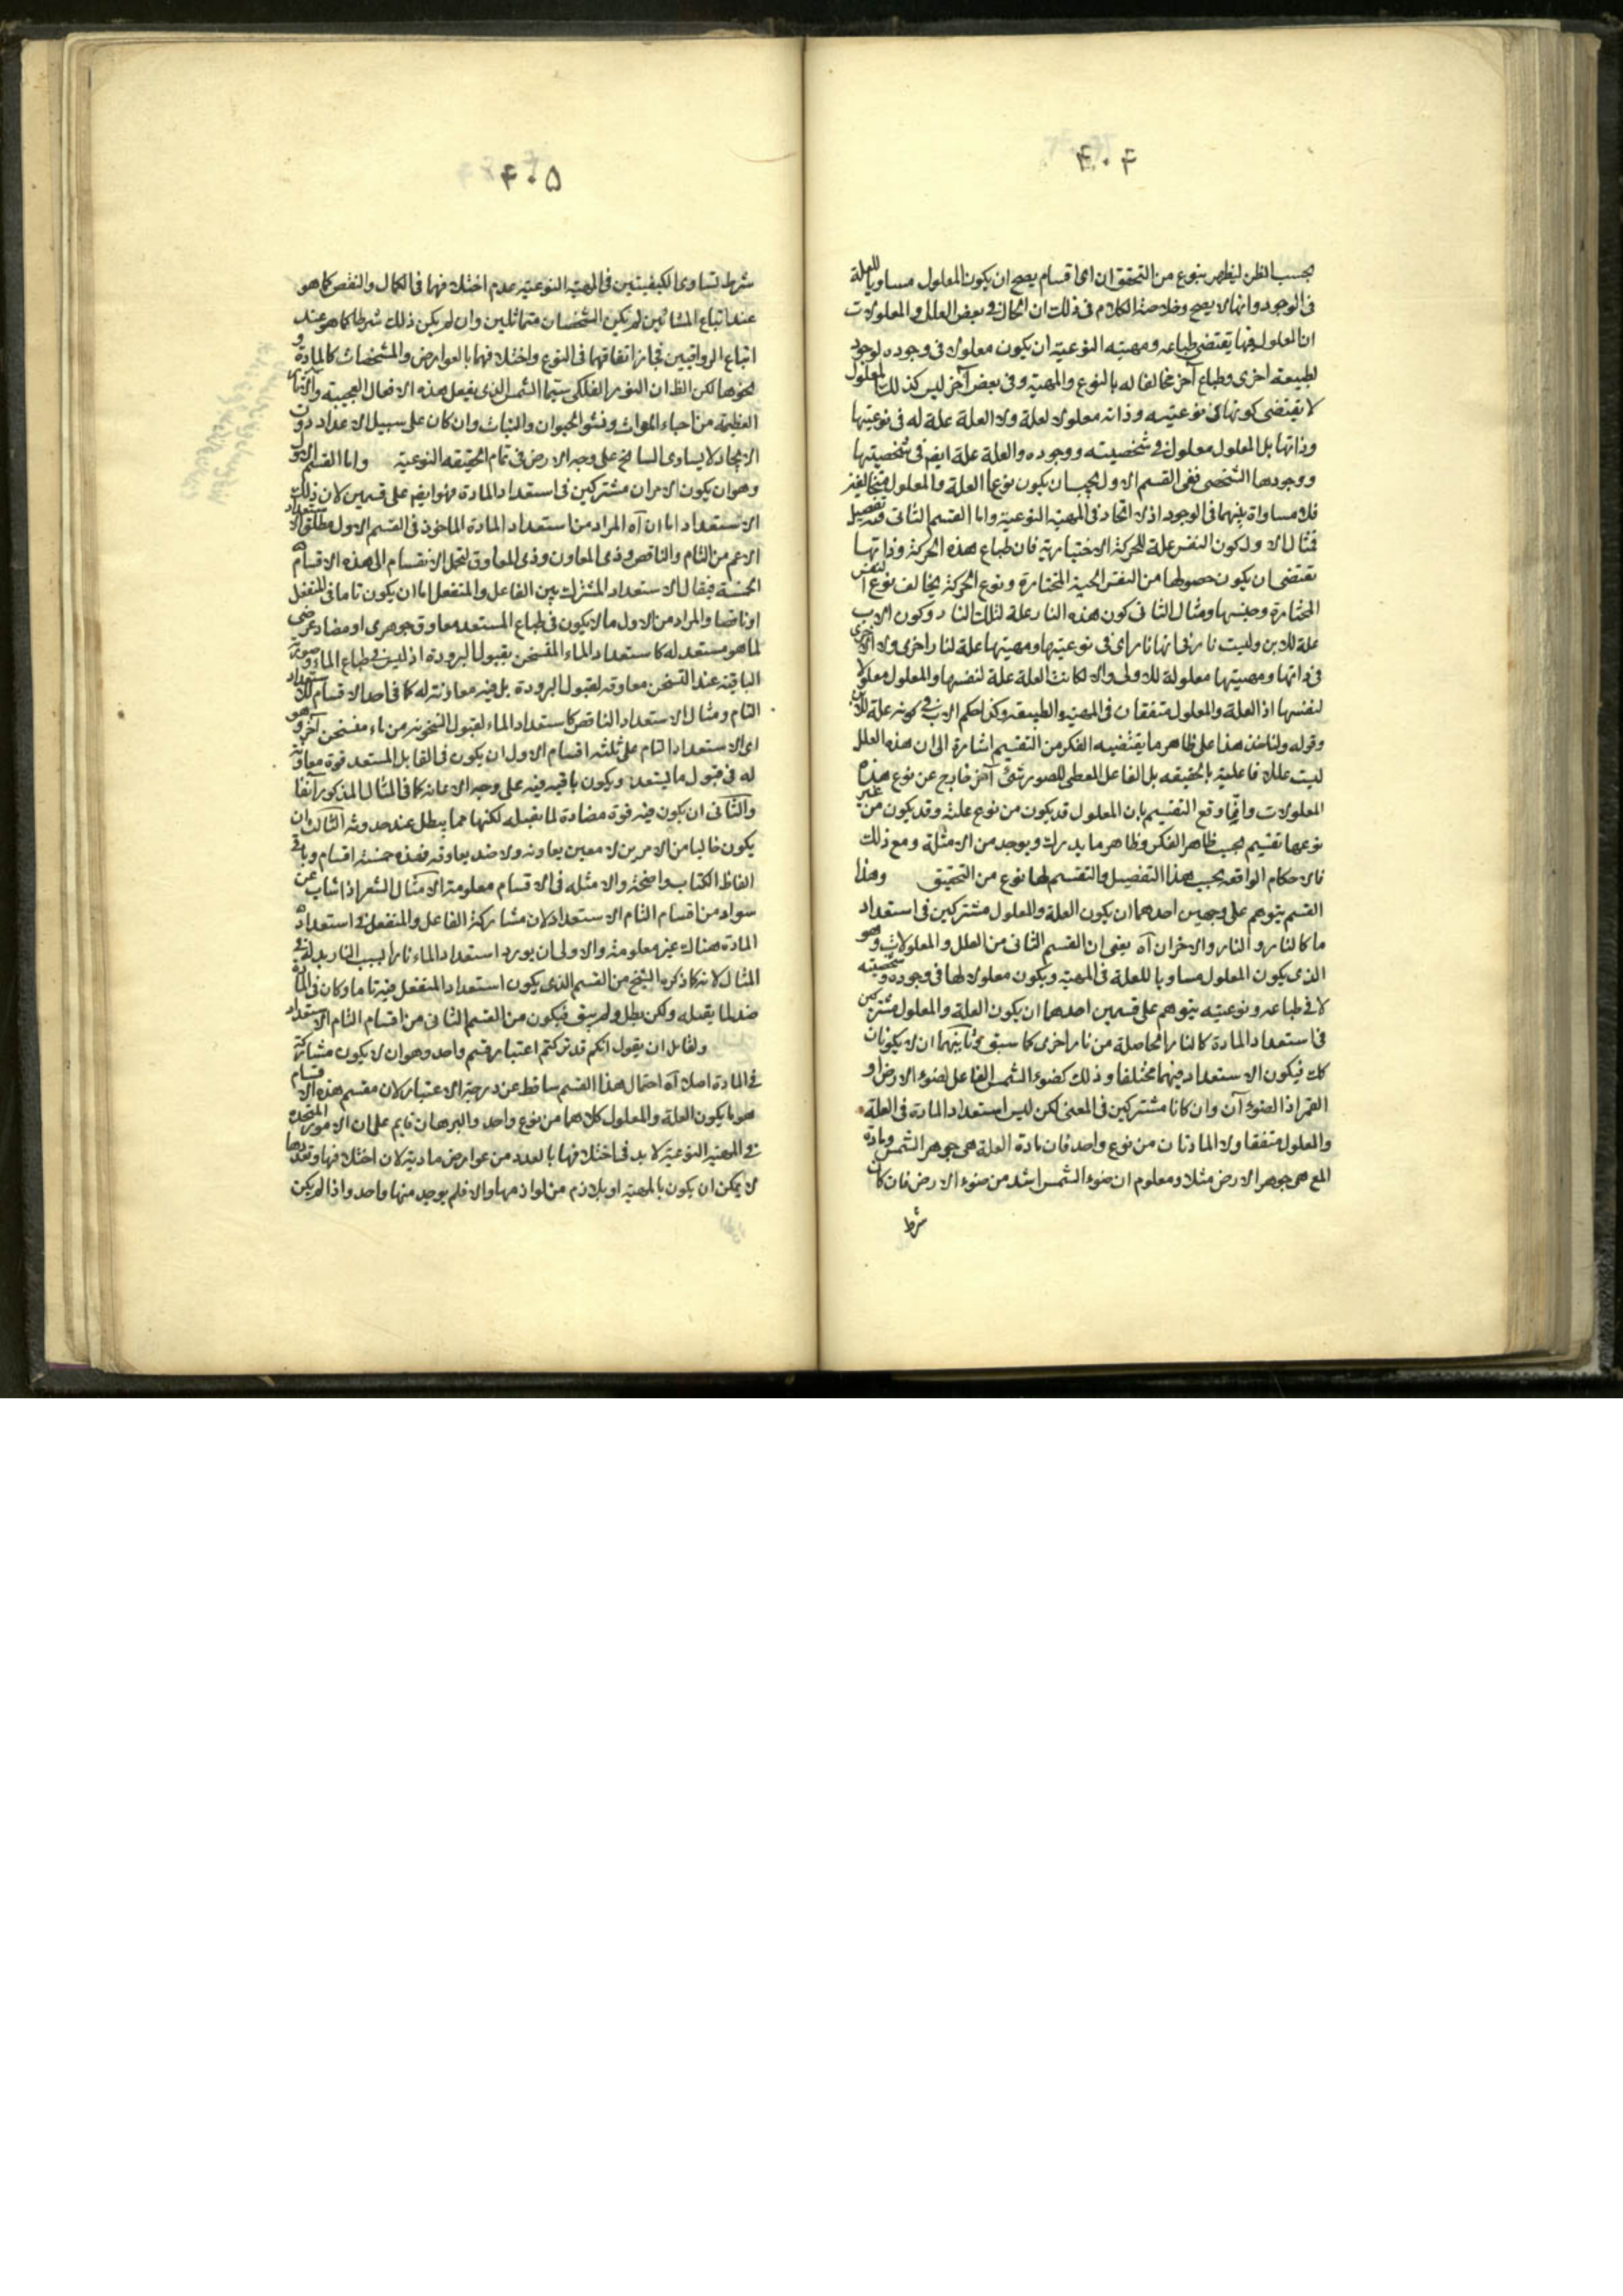 ۴۰۴
بحسب الظن ليظهر بنوع من التحقق ان اى اقسام يصح ان يكون المعلول مساويا للعلة
فى الوجود وانها لا يصح وخلاصة الكلام فى ذلك ان الحال فى بعض العلل والمعلولات
ان المعلول فيها يقتضى طباعه ومهيته النوعية ان يكون معلولا فى وجوده لوجود
لطبيعة اخرى وطباع آخر مخالفا له بالنوع والمهية وفى بعض آخر ليس كذلك المعلول
لا يقتضى كونها فى نوعيته وذاته معلولا لعلة ولا العلة علة له فى نوعيتها
وذاتها بل المعلول معلول فى شخصيته ووجوده والعلة علة ايضا فى شخصيتها
ووجودها الشخصى ففى القسم الاول يجب ان يكون نوعا العلة والمعلول متخالفين
فلا مساواة بينهما فى الوجود اذ لا اتحاد فى المهية النوعية واما القسم الثانى ففيه تفصيل
فمثال الاول كون النفس علة للحركة الاختيارية فان طباع هذه الحركة وذاتها
تقتضى ان يكون حصولها من النفس الحية المختارة ونوع الحركة يخالف نوع النفس
المختارة وجنسها ومثال الثانى كون هذه النار علة لتلك النار وكون الاب
علة للابن وليست نار فى انها نار اى فى نوعيتها ومهيتها علة لنار اخرى ولا الاخرى
فى ذاتها ومهيتها معلولة للاولى والا لكانت العلة علة لنفسها والمعلول معلولا
لنفسها اذ العلة والمعلول متفقان فى المهية والطبيعة وكذا حكم الاب فى كونه علة للابن
وقوله ولناخذ هذا على ظاهر ما يقتضيه الفكر من التقسيم اشارة الى ان هذه العلل
ليست عللا فاعلية بالحقيقه بل الفاعل المعطى للصور شئ آخر خارج عن نوع هذه
المعلولات وانما وقع التقسيم بان المعلول قد يكون من نوع علته وقد يكون من غير
نوعها تقسيم بحسب ظاهر الفكر وظاهر ما يدرك ويوجد من الامثلة ومع ذلك
فالاحكام الواقعه بحسب هذا التفصيل والتقسيم لها نوع من التحقيق وهذا
القسم يتوهم على وجهين احدهما ان يكون العلة والمعلول مشتركين فى استعداد
ما كالنار والنار والاخران آه يعنى ان القسم الثانى من العلل والمعلولات وهو
الذى يكون المعلول مساويا للعلة فى المهية ويكون معلولا لها فى وجوده وشخصيته
لا فى طباعه ونوعيته يتوهم على قسمين احدهما ان يكون العلة والمعلول مشتركين
فى استعداد المادة كالنار الحاصلة من نار اخرى كما سبق وثانيهما ان لا يكونان
كك فيكون الاستعداد فيهما مختلفا وذلك كضوء الشمس الفاعل لضوء الارض او
القمر اذ الضوء آن وان كانا مشتركين فى المعنى لكن ليس استعداد المادة فى العلة
والمعلول متفقا ولا المادتان من نوع واحد فان مادة العلة هى جوهر الشمس ومادة
المع هى جوهر الارض مثلا ومعلوم ان ضوء الشمس اشد من ضوء الارض فان كان
شرط
۴۰۵
شرط تساوى الكيفيتين فى المهية النوعية عدم اختلافهما فى الكمال والنقص كما هو
عند اتباع المشائين لم يكن الشخصان متماثلين وان لم يكن ذلك شرطا كما هو عند
اتباع الرواقيين فجاز اتفاقهما فى النوع واختلافهما بالعوارض والمشخصات كالمادة و
نحوها لكن الظ ان النور الفلكى سيما الشمس الذى يفعل هذه الافعال العجيبة والآثار
العظيمة من احياء الموات ونشو الحيوان والنبات وان كان على سبيل الاعداد دون
الايجاد لا يساوى السانح على وجه الارض فى تمام الحقيقه النوعية واما القسم الاول
وهو ان يكون الامران مشتركين فى استعداد المادة فهو ايضا على قسمين لان ذلك
الاستعداد اما ان آه المراد من استعداد المادة الماخوذ فى القسم الاول مطلق الاستعداد
الاعم من التام والناقص وذى المعاون وذى المعاوق لتحمل الانقسام الى هذه الاقسام
الخمسة فيقال الاستعداد المشترك بين الفاعل والمنفعل اما ان يكون تاما فى المنفعل
او ناقصا والمراد من الاول ما لا يكون فى طباع المستعد معاوق جوهرى او مضاد عرضى
لما هو مستعد له كاستعداد الماء المتسخن بقبول البرودة اذ ليس فى طباع الماء وصورته
الباقيه عند التسخن معاوقه لقبول البرودة بل فيه معاونة له كما فى احد الاقسام للاستعداد
التام ومثال الاستعداد الناقص كاستعداد الماء لقبول التسخن من ماء متسخن آخر وهو
اى الاستعداد التام على ثلثه اقسام الاول ان يكون فى القابل المستعد قوة معاونة
له فى قبول ما يستعد ويكون باقيه فيه على وجه الاعانه كما فى المثال المذكور آنفا
والثانى ان يكون فيه قوة مضادة لما يقبله لكنها مما يبطل عند حدوثه الثالث ان
يكون خاليا من الامرين لا معين يعاونه ولا ضد يعاوقه فهذه خمسة اقسام وباقى
الفاظ الكتاب واضحة والامثله فى الاقسام معلومة الا مثال الشعر اذا شاب عن
سواد من اقسام التام الاستعداد لان مشاركة الفاعل والمنفعل فى استعداد
المادة هناك غير معلومة والاولى ان يورد استعداد الماء نارا بسبب النار بدله فى
المثال لانه كما ذكره الشيخ من القسم الذى يكون استعداد المنفعل فيه تاما وكان فى المادة
ضد لما يقبله ولكن بطل ولم يبق فيكون من القسم الثانى من اقسام التام الاستعداد
ولقائل ان يقول انكم قد تركتم اعتبار قسم واحد وهو ان لا يكون مشاركة
فى المادة اصلا آه احتمال هذا القسم ساقط عن درجة الاعتبار لان مقسم هذه الاقسام
هو ما يكون العلة والمعلول كلاهما من نوع واحد والبرهان قايم على ان الامور المتحده
فى المهية النوعية لا بد فى اختلافها بالعدد من عوارض مادية لان اختلافها وتعددها
لا يمكن ان يكون بالمهية او بلازم من لوازمها والا فلم يوجد منها واحد واذا لم يكن